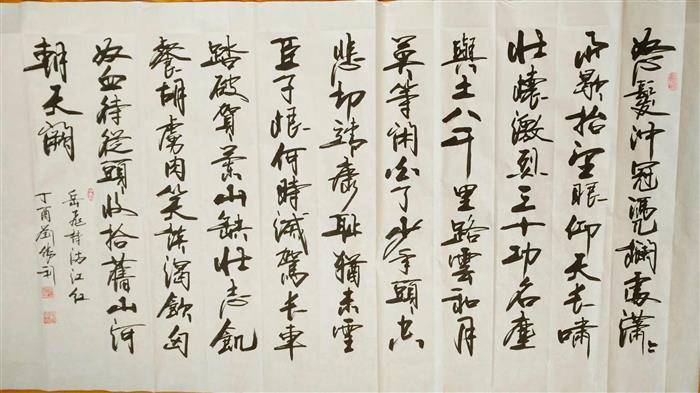 怒髮沖冠憑欄處瀟〻
雨歇抬望眼仰天長嘯
壯懷激烈三十功名塵
與土八千里路雲和月
莫等閑白了少年頭空
悲切靖康耻猶未雪
臣子恨何時滅駕長車
踏破賀蘭山缺壯志飢
餐胡虜肉笑談渴飲匈
奴血待從頭收拾舊山河
朝天闕
岳飛詞滿江红
丁酉